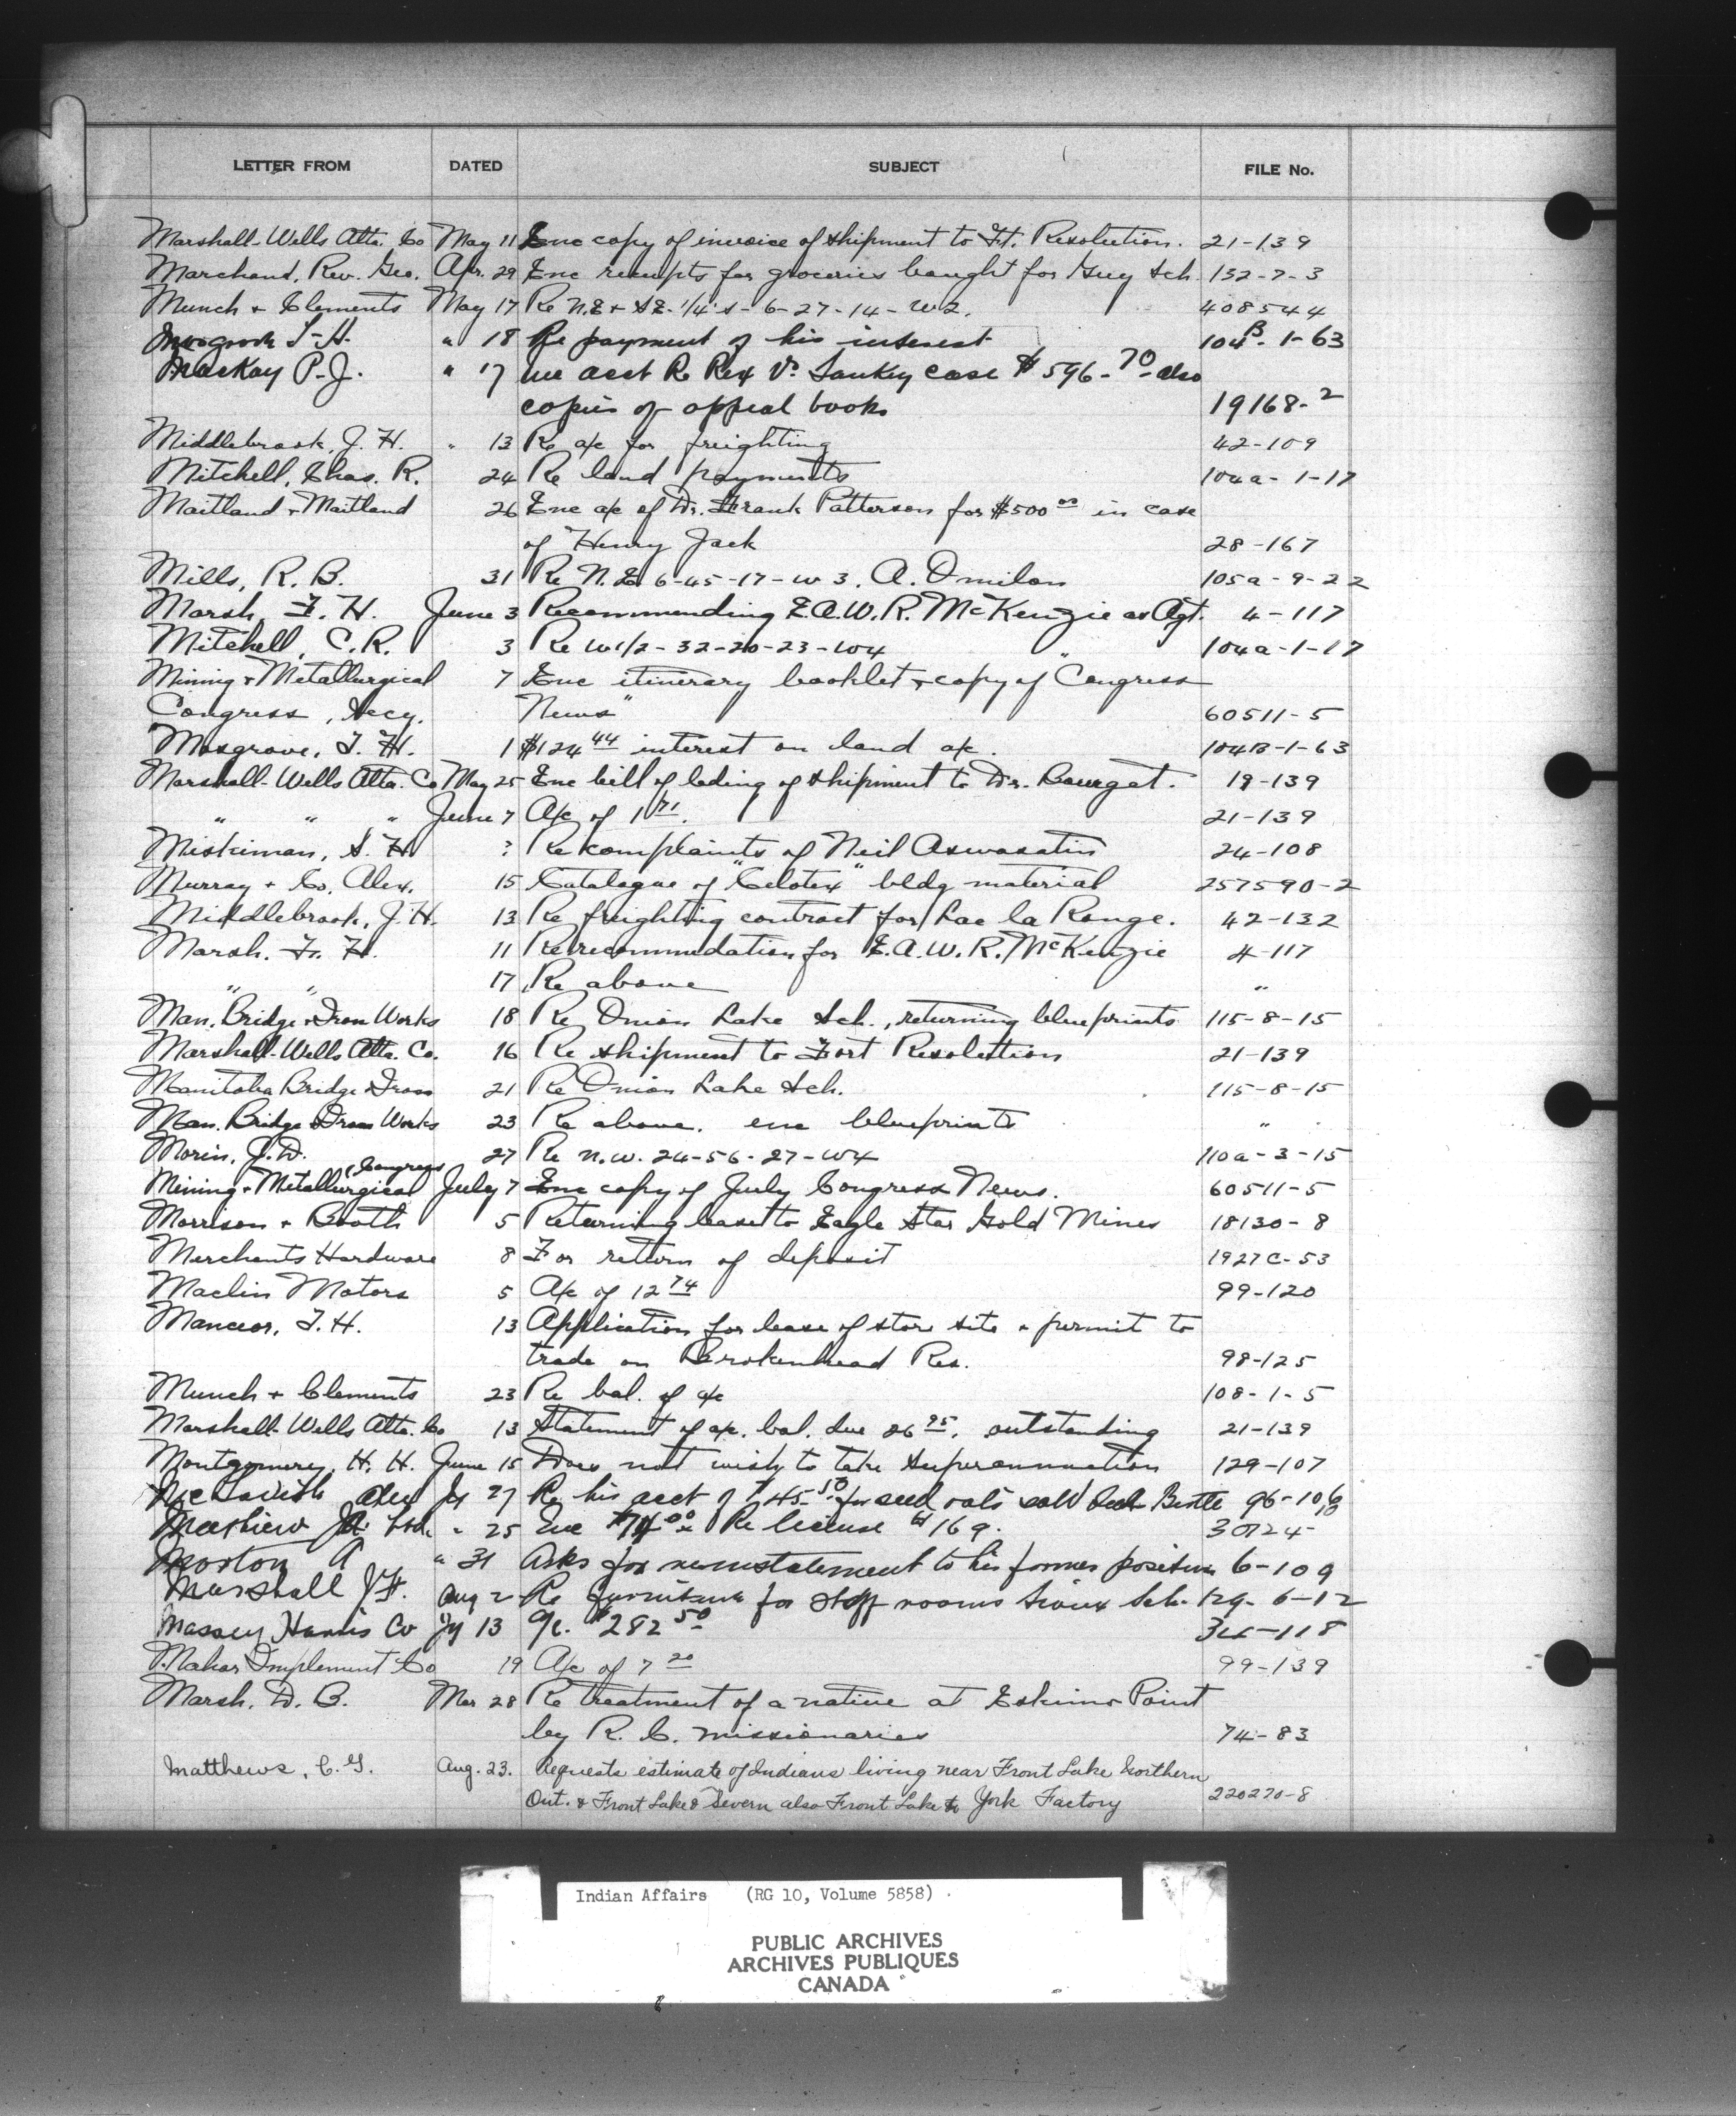 LETTER FROM DATED SUBJECT FILE No.
Marshall-Wells Alta. Co May 11 Enc copy of invoice of shipment to Ft. Resolution. 21-139
Marchand, Rev. Geo. Apr. 29 Enc receipts for groceries bought for Guy Sch. 152-7-3
Munch + Clements May 17 Re N.E + S.E. 1/4's - 6-27-14-W2. 408544
" 18 Re payment of his interest 104B-1-63
MacKay P.J. " 17 acct Re Rex Vs Sankey case $596.70 also
copies of appeal books 19168-2
Middlebrook, J. H. " 13 Re a/c for freighting 42-109
Mitchell, Chas. R. 24 Re land payments 104a-1-17
Maitland + Maitland 26 Enc a/c of Dr. Frank Patterson for $500 00 in case
of Henry Jack 28-167
Mills, R. B. 31 Re N.E. 6-45-17-W3, A. Omilon 105a-9-22
Marsh, F. H. June 3 Recommending E.A.W.R. McKenzie as Agt. 4-117
Mitchell, C.R. 3 Re W1/2-32-20-23-W4 104a-1-17
Mining + Metallurgical 7 Enc itinerary booklet + copy of "Congress
Congress, Secy. News" 60511-5
Mosgrove, T. H. 1 $124 44 interest on land a/c. 104B-1-63
Marshall-Wells Alta. Co May 25 Enc bill of lading of shipment to Dr. Bourget. 19-139
" " " June 7 A/c of 1 71. 21-139
Miskiman, S. H. ? Re complaints of Neil Aswasatin 24-108
Murray + Co, Alex. 15 Catalogue of "Celotex" bldg material 257590-2
Middlebrook, J.H. 13 Re freighting contract for Lac la Ronge. 42-132
Marsh. F. H. 11 Re recommendation for E.A.W.R. McKenzie 4-117
" " 17 Re above "
Man. Bridge + Iron Works 18 Re Onion Lake Sch., returning blueprints 115-8-15
Marshall-Wells Alta. Co. 16 Re shipment to Fort Resolution 21-139
Manitoba Bridge + Iron 21 Re Onion Lake Sch. 115-8-15
Man. Bridge + Iron Works 23 Re above. enc blueprints "
Morin, J.D. 27 Re N.W. 24-56-27-W4 110a-3-15
Mining + Metallurgical Congress July 7 Enc copy of July Congress News. 60511-5
Morrison + Booth 5 Returning lease to Eagle Star Gold Mines 18130-8
Merchants Hardware 8 For return of deposit 1927C-53
Maclin Motors 5 A/c of 12 74 99-120
Manceor, T. H. 13 Application for lease of store site + permit to
trade on Brokenhead Res. 98-125
Munch + Clements 23 Re bal. of a/c 108-1-5
Marshall-Wells Alta. Co 13 Statement of a/c. bal. due 26 95. outstanding 21-139
Montgomery, H. H. June 15 Does not wish to take superannuation 129-107
Alex Jy 27 Re his acct of $45.50 for seed oats sold Birtle
" 25 Enc Re license # 169.
Morton A " 31 Asks for reinstatement to his former position 6-109
Marshall J.F. Aug 2 Re furniture for staff rooms Sioux Sch. 129-6-12
Massey Harris Co Jy 13 a/c. $282 50 34-118
Mahar Implement Co 19 A/c of 7 20 99-139
Marsh, D. B. Mar 28 Re treatment of a native at Eskimo Point
by R. C. missionaries 74-83
Matthews, C.G. Aug. 23. Requests estimate of Indians living near Front Lake Northern
Ont. & Front Lake & Severn also Front Lake to York Factory 220270-8
Indian Affairs (RG 10, Volume 5858)
PUBLIC ARCHIVES
ARCHIVES PUBLIQUES
CANADA